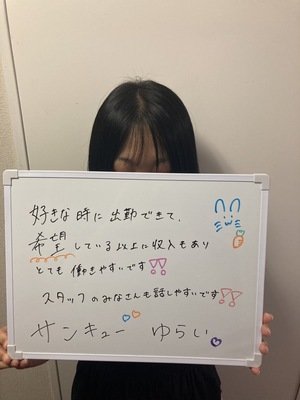 好きな時に出勤できて、
希望している以上に収入もあり
とても働きやすいです!!
スタッフのみなさんも話しやすいです!!
サンキュー ゆらい